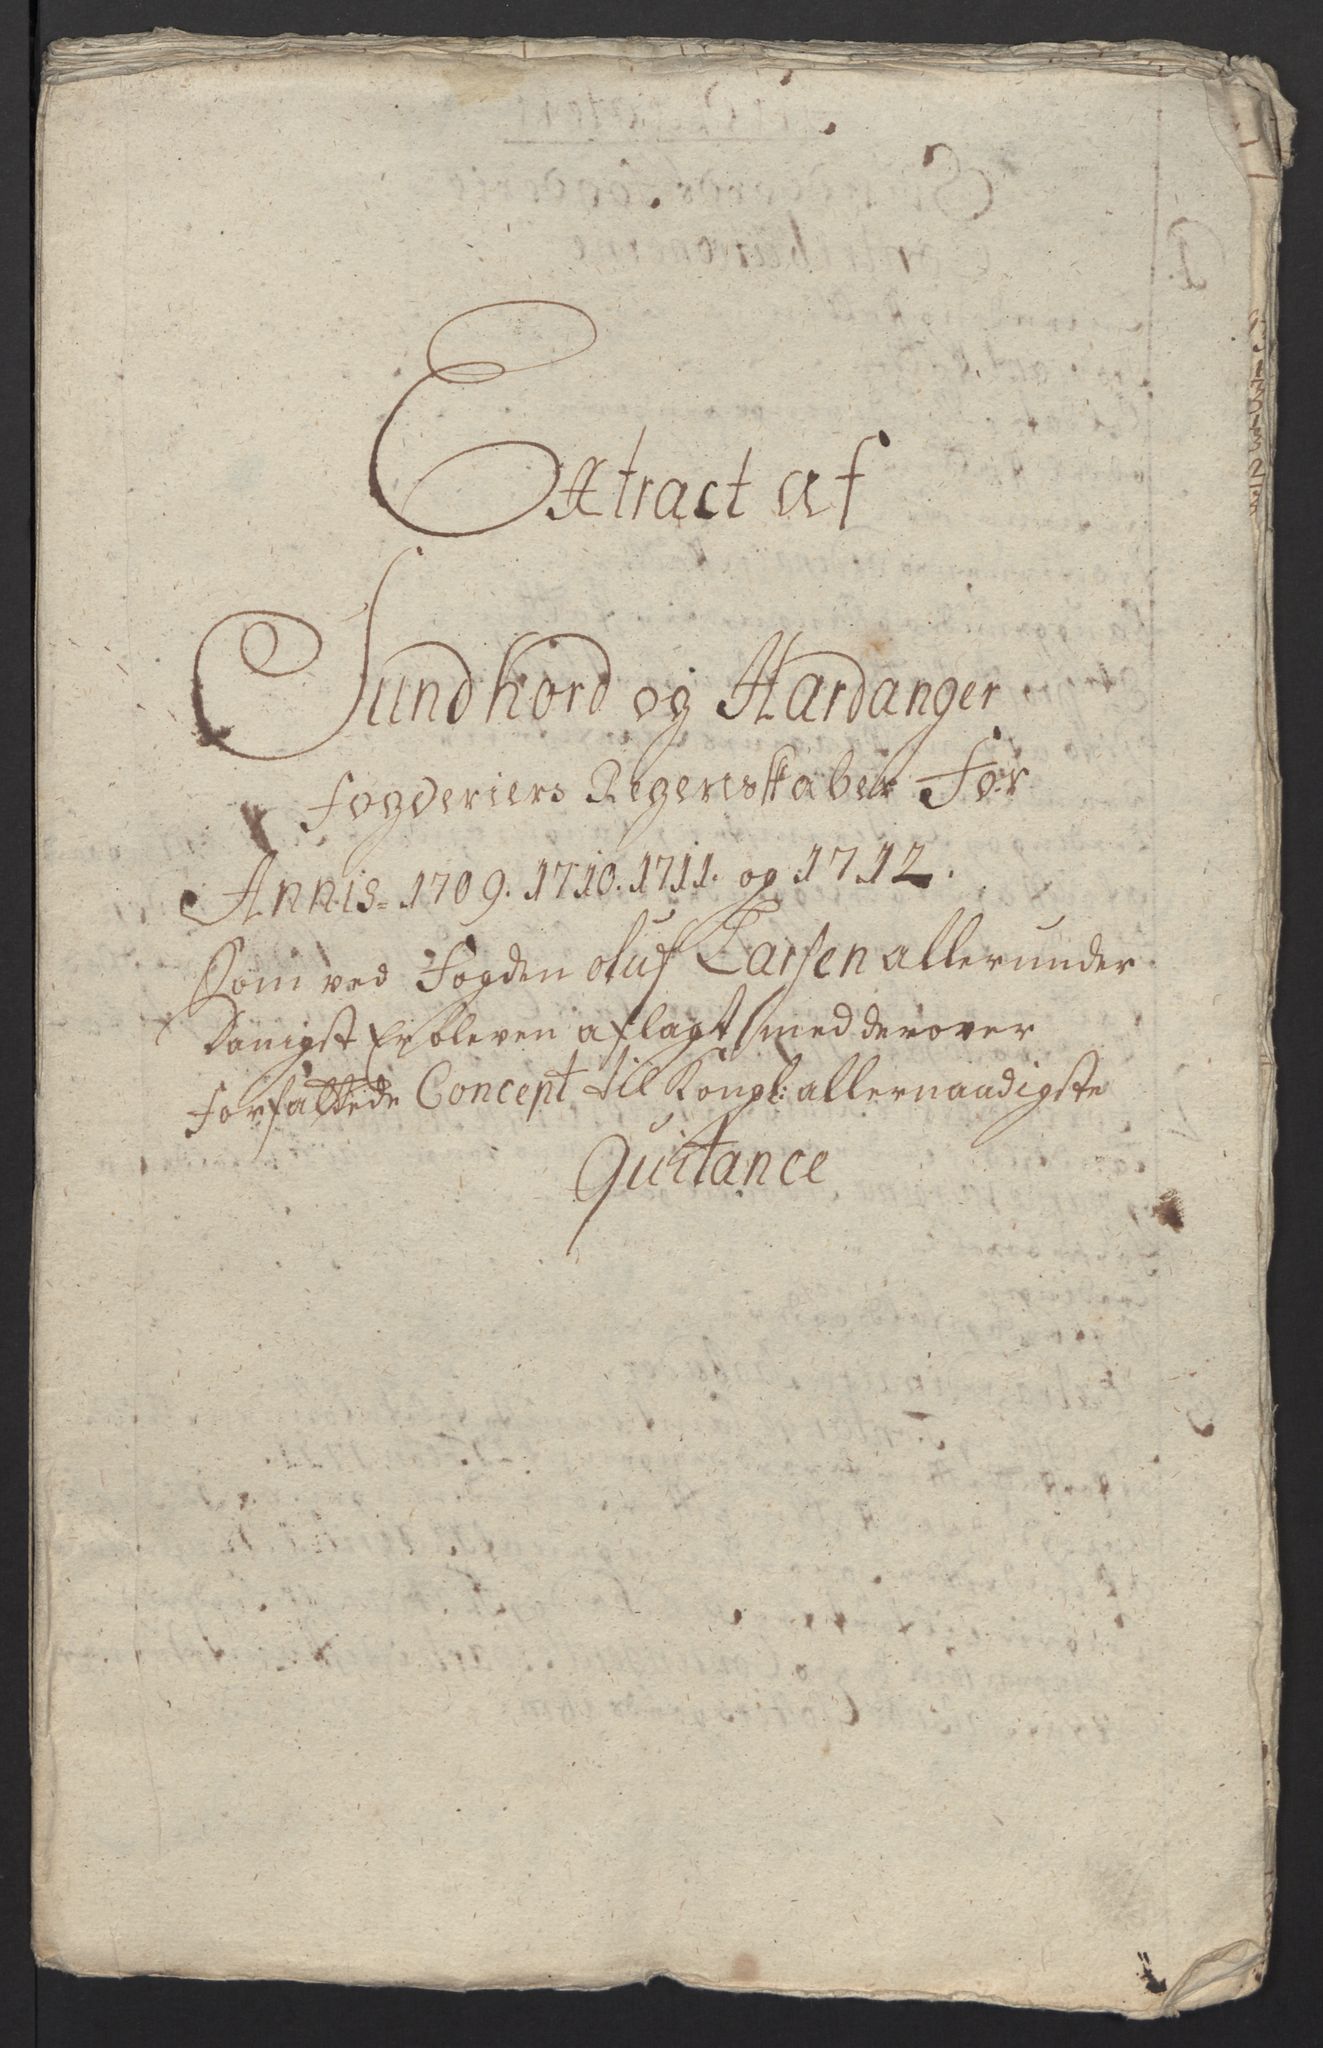 Extract af
Sundhord og Hardanger
fogderiers Regenskaber For
Annis 1709. 1710. 1711. og 1712.
Som ved Fogden oluf Larsen allerunder
Danigst Er bleven aflagt, med derover
forfattede Concept til Kongl: allernaadigste
Quitance